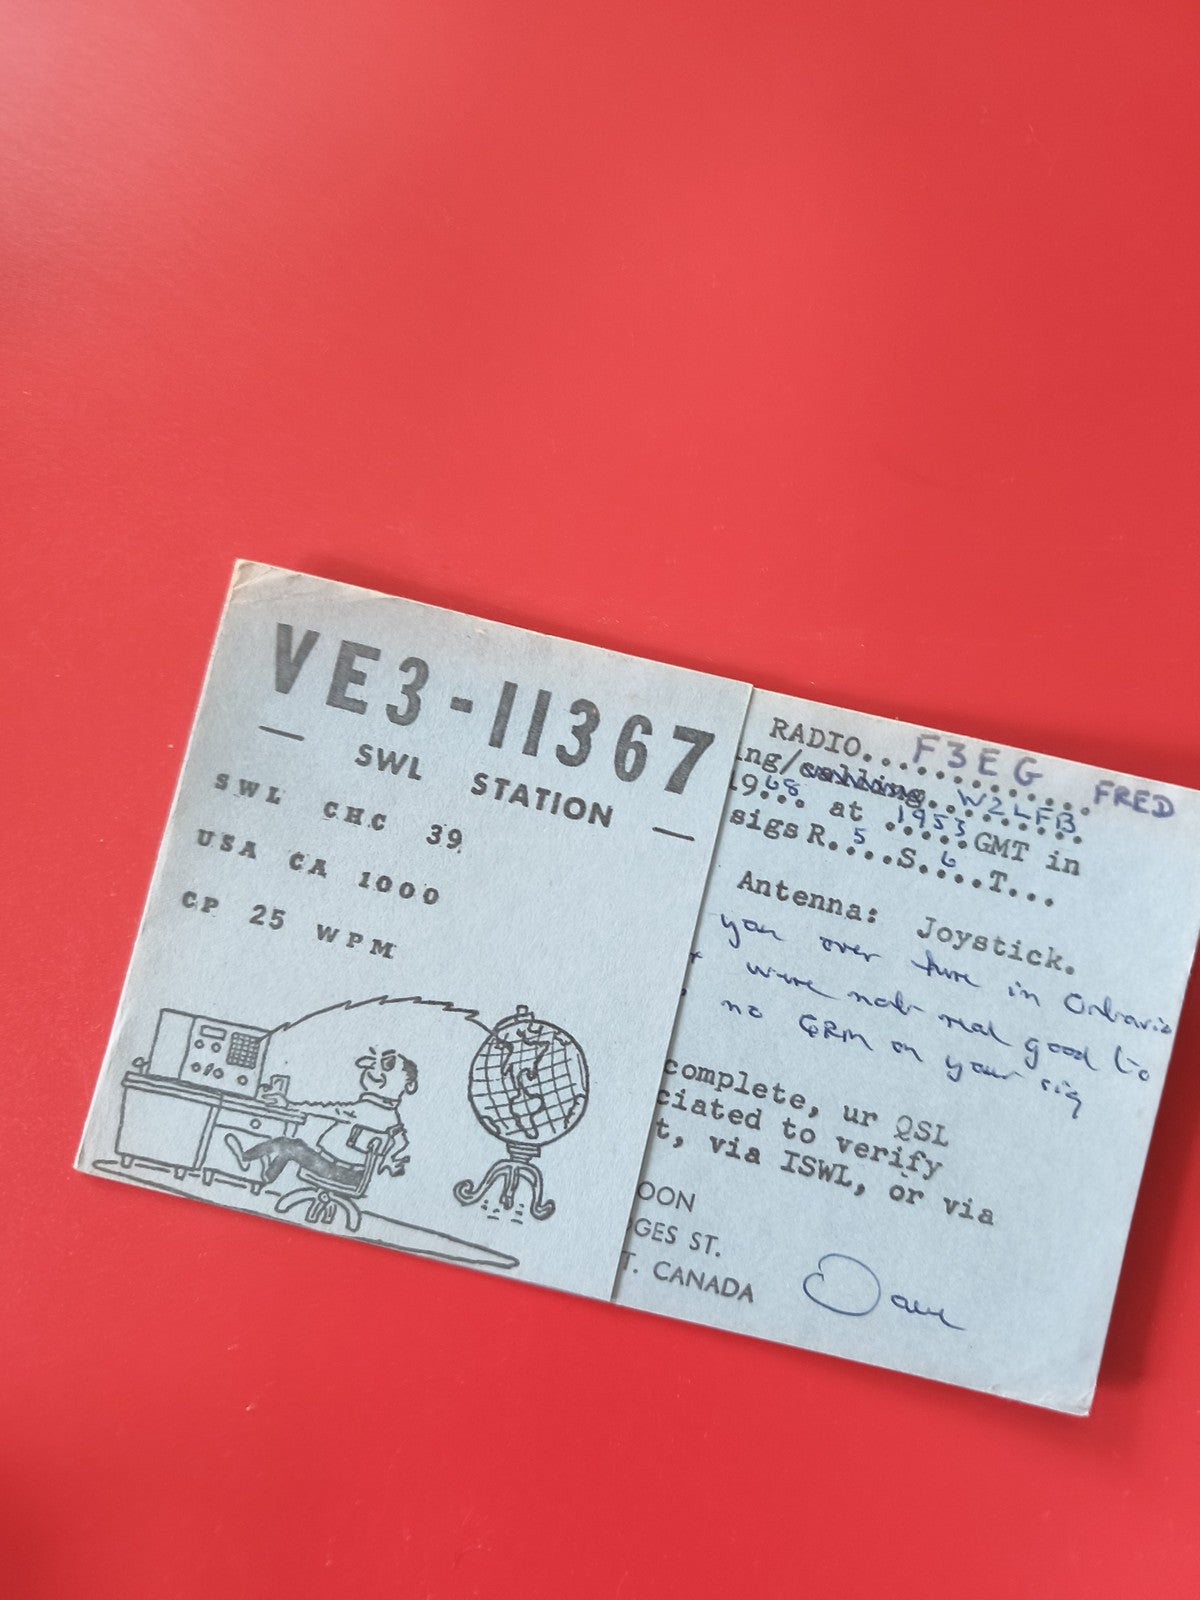 VE3-11367
— SWL STATION —
SWL CHC 39
USA CA 1000
CP 25 WPM
RADIO....F3EG FRED
ng/calling..W2LFB
1968 at 1953 GMT in
sigs R..5..S..6..T...
Antenna: Joystick.
you over here in Ontario
were not real good to
no QRM on your sig
complete, ur QSL
ciated to verify
t, via ISWL, or via
OON
GES ST.
T. CANADA
Dave